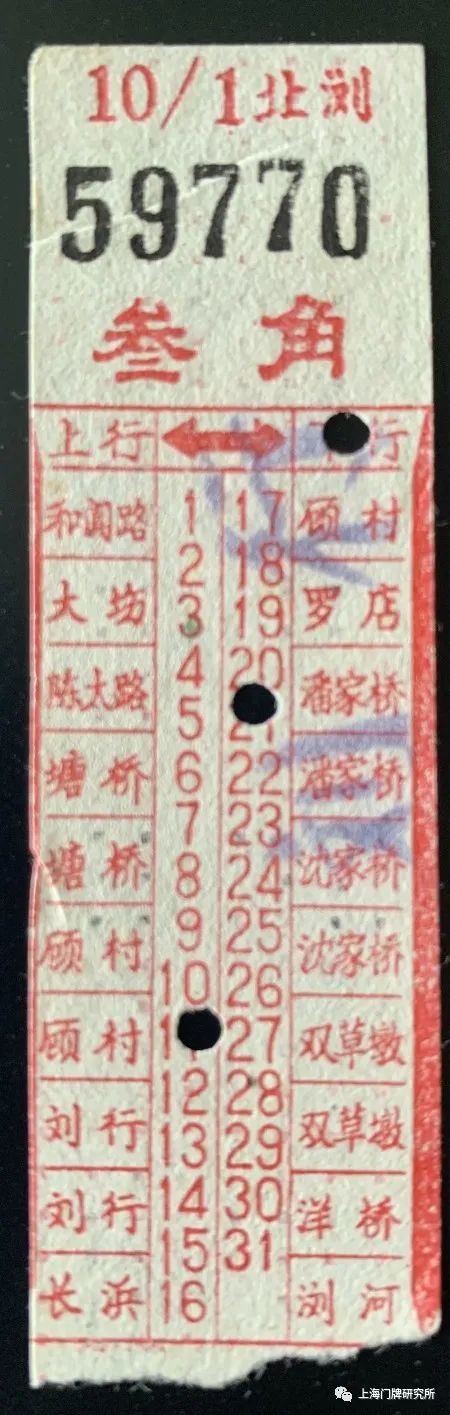 10/1北浏
59770
叁角
上行 行
和阗路 1 17 顾村
2 18
大场 3 19 罗店
4 20
陈太路 5 潘家桥
塘桥 6 22 潘家桥
7 23
塘桥 8 24 沈家桥
9 25
顾村 10 26 沈家桥
顾村 27 双草墩
12 28
刘行 13 29 双草墩
刘行 14 30 洋桥
15 31
长浜 16 浏河
上海门牌研究所